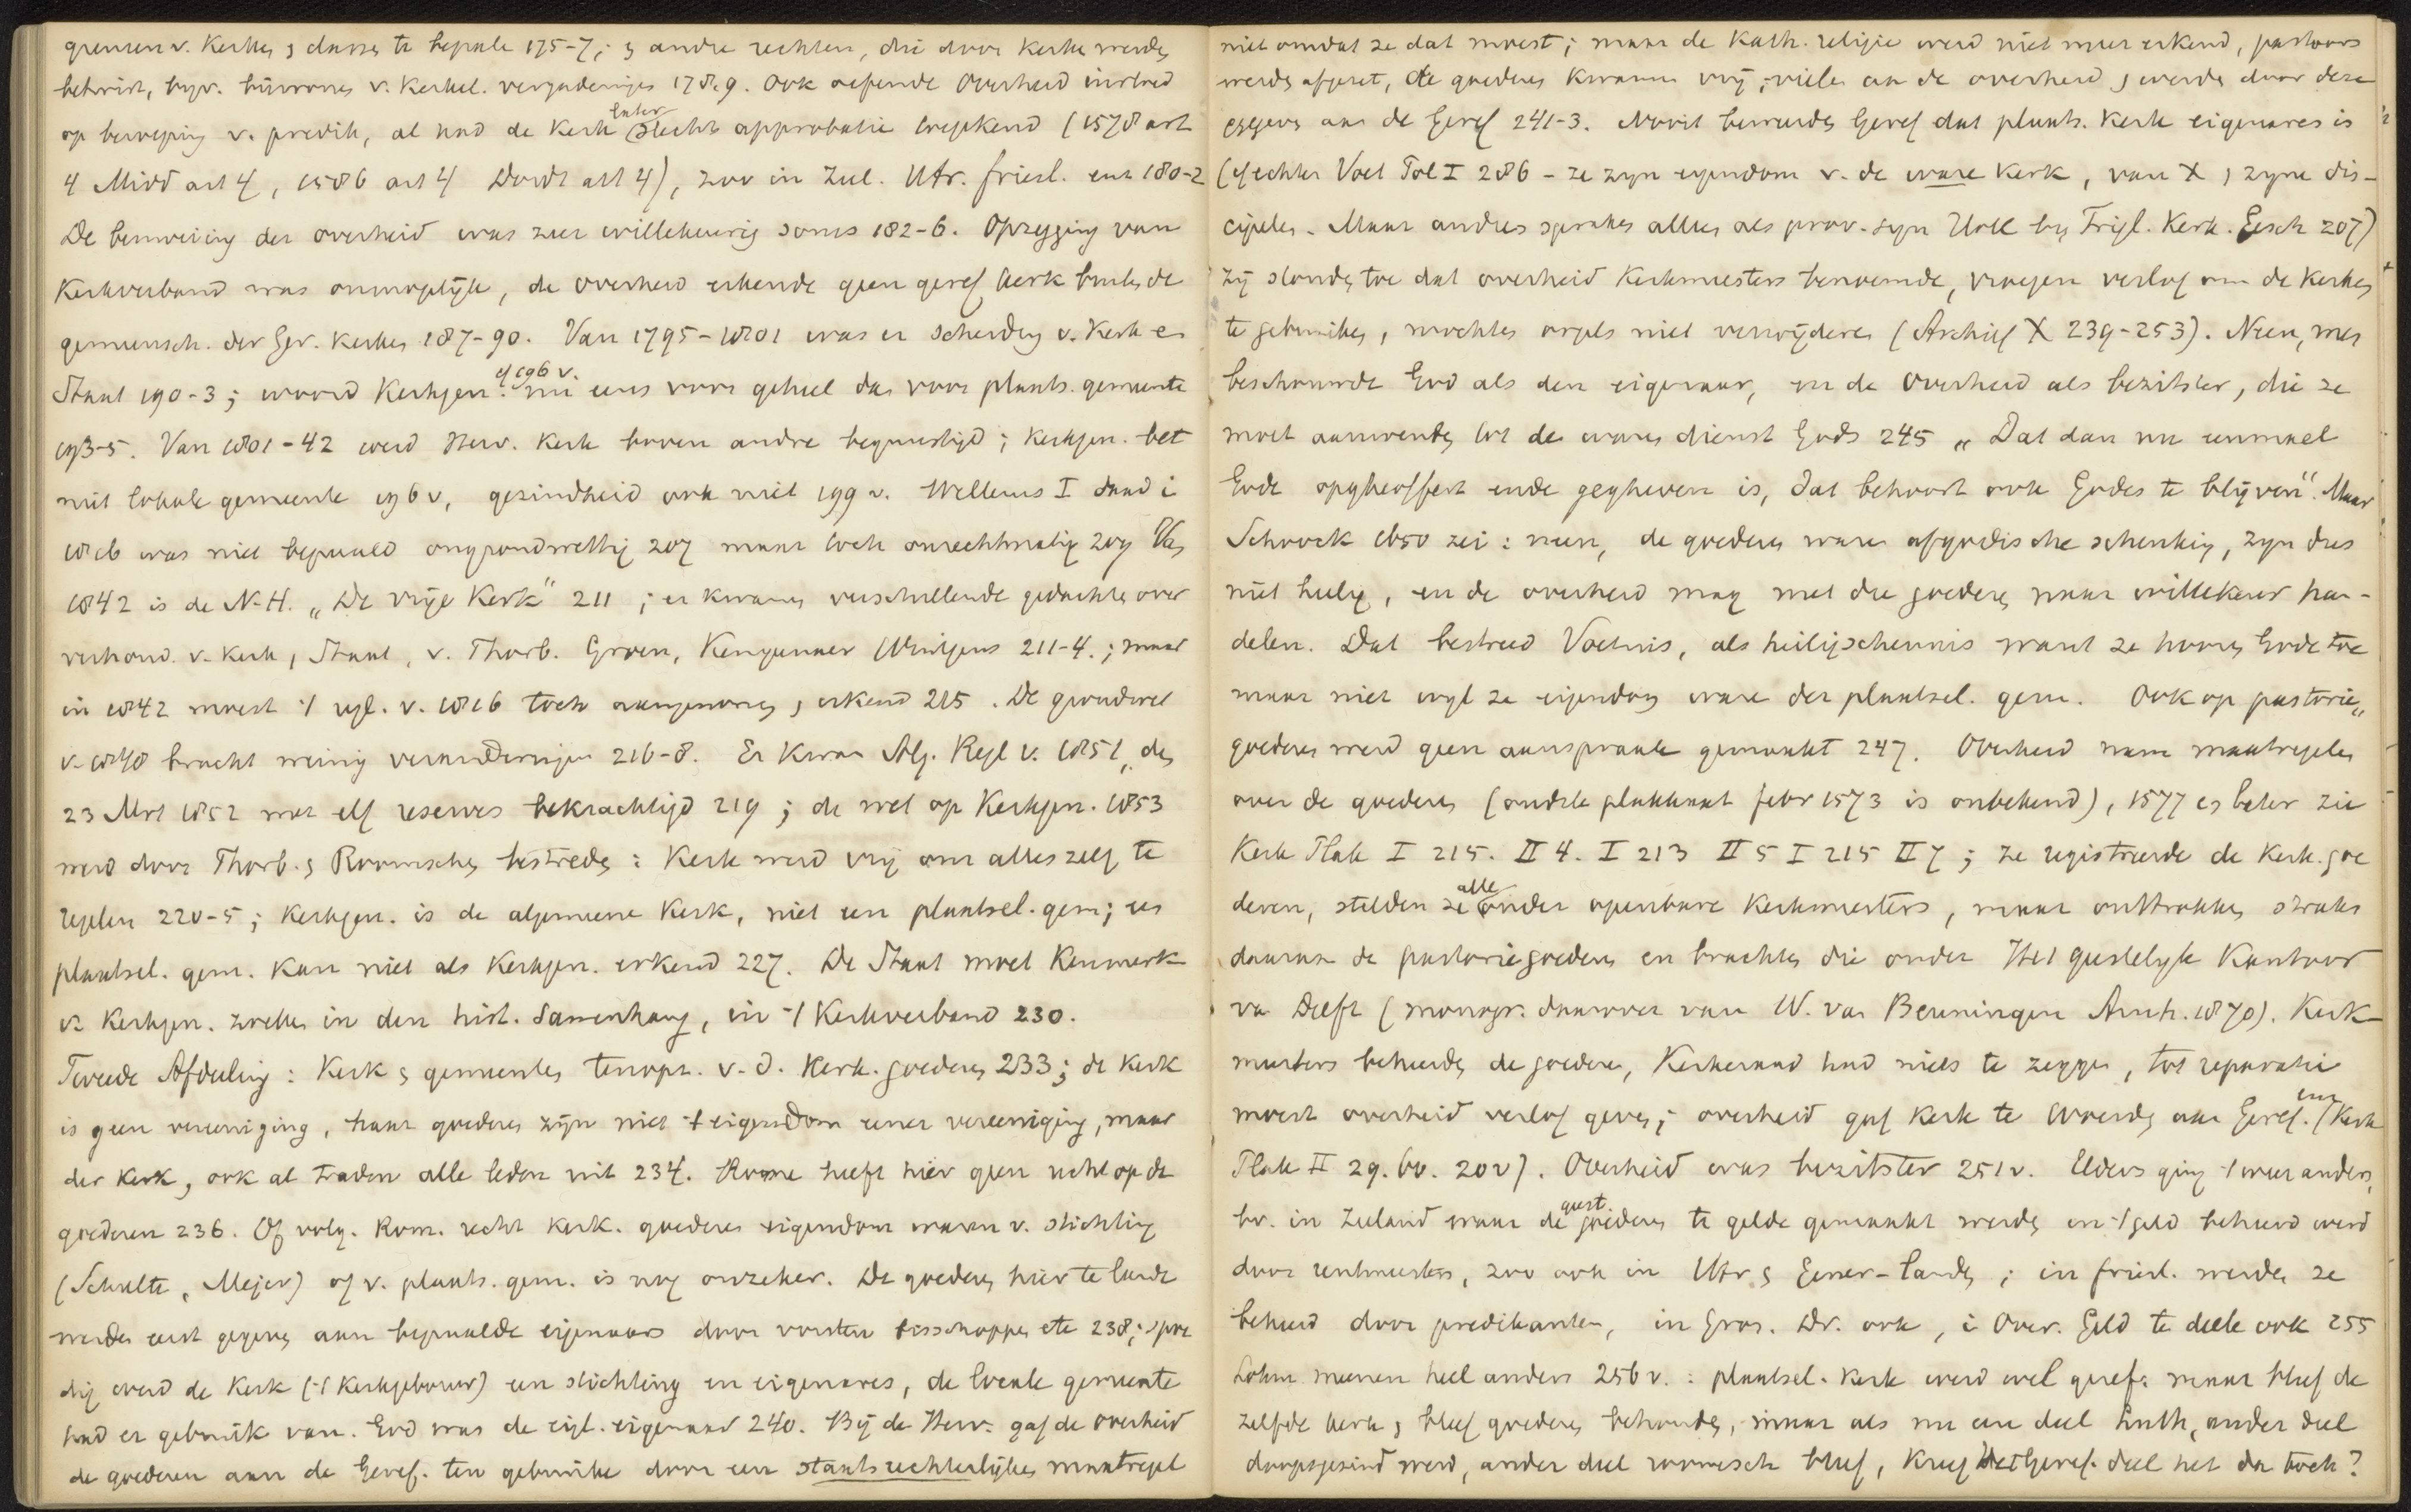 grenzen v. Kerken, classes te bepale 175-7; andre rechten, die door kerke werden
betwist, byv. bijwonen v. Kerkel. vergaderingen 178.9. Ook oefende Overheid invloed
op beroeping v. predik, al had de Kerk later slechts approbatie toegekend (1578 art
4 Midd art 4, 1586 art 4 Dordt art 4), zoo in Zeel. Utr. friesl. enz 180-2
De bemoeiing der overheid was zeer willekeurig soms 182-6. Opzegging van
Kerkverband was onmogelijk, de overheid erkende geen geref kerk buiten de
gemeensch. der Ger. Kerken 187-90. Van 1795-1801 was er scheiding v. Kerk en
Staat 190-3; woord Kerkgen. cf 196 v. nu eens voor geheel dan voor plaats. gemeente
193-5. Van 1801-42 werd Herv. Kerk boven andre begunstigd; Kerkgen. bet
niet lokale gemeente 196 v, gezindheid ook niet 199 v. Willems I daad i
1816 was niet bepaald ongrondwettig 207 maar toch onrechtmatig 209 Van
1842 is de N.H. „De vrije Kerk" 211; er kwamen verschillende gedachten over
verhoud. v. Kerk, Staat, v. Thorb. Groen, Kemgenaer Wintgens 211-4.; maar
in 1842 moest 't regl. v. 1816 toch aangenomen, erkend 215. De grondwet
v. 1848 bracht weinig veranderingen 216-8. Er kwam Alg. Regl v. 1851, den
23 Mrt 1852 met elf reserves bekrachtigd 219; de wet op Kerkgen. 1853
werd door Thorb. & Roomschen bestreden: Kerk werd vrij om alles zelf te
regelen 220-5; Kerkgen. is de algemeene Kerk, niet een plaatsel. gem; een
plaatsel. gem. kan niet als Kerkgen. erkend 227. De Staat moet Kenmerk
v. Kerkgen. zoeken in den hist. Samenhang, in 't Kerkverband 230.
Tweede Afdeeling: Kerk & gemeentes tenopz. v. d. Kerk. goederen 233; de Kerk
is geen vereeniging, haar goederen zijn niet 't eigendom eener vereeniging, maar
der Kerk, ook al traden alle leden uit 234. Rome heeft hier geen recht op de
goederen 236. Of volg. Rom. recht Kerk. goederen eigendom waren v. stichting
(Schulte, Mejer) of v. plaats. gem. is nog onzeker. De goederen hier te lande
werden eerst gegeven aan bepaalde eigenaars door vorsten bisschoppen etc 238; spoe
dig werd de Kerk ('t Kerkgebouw) een stichting en eigenares, de locale gemeente
had er gebruik van. God was de eigl. eigenaar 240. Bij de Herv. gaf de overheid
de goederen aan de Geref. ten gebruike door een staatsrechterlijken maatregel
niet omdat ze dat moest; maar de Kath. religie werd niet meer erkend, pastoors
werden afgezet, de goederen kwamen vrij, vielen aan de overheid, werden door deze
gegeven aan de Geref 241-3. Nooit beweerden Geref dat plaats. Kerk eigenares is
(cf echter Voet Pol I 286 - ze zyn eigendom v. de ware Kerk, van X, zyne dis-
cipelen. Maar andres spraken allen als prov. syn Utr by Trigl. Kerk. Gesch 207)
Zij stonden toe dat overheid Kerkmeesters benoemde, vroegen verlof om de kerken
te gebruiken, mochten orgels niet verwijderen (Archief X 239-253). Neen, men
beschouwde God als den eigenaar, en de Overheid als bezitster, die ze
moet aanwenden tot den waren dienst Gods 245 „Dat dan nu eenmael
Gode opgheoffert ende gegheven is, dat behoort ook Godes te blijven". Maar
Schoock 1650 zei: neen, de goederen waren afgodische schenking, zyn dus
niet heilig, en de overheid mag met die goederen naar willekeur han-
delen. Dat bestreed Voetius, als heiligschennis want ze hooren Gode toe
maar niet wyl ze eigendom ware der plaatsel. gem. Ook op pastorie„
goederen werd geen aanspraak gemaakt 247. Overheid nam maatregelen
over de goederen (oudste plakkaat febr 1573 is onbekend), 1577 en later zie
Kerk Plak I 215. II 4. I 213 II 5 I 215 II 7; ze registreerde de Kerk. goe
deren, stelden ze alle onder openbare Kerkmeesters, maar onttrokken straks
daaraan de pastoriegoederen en brachten die onder Het geestelyk Kantoor
van Delft (monogr. daarover van W. van Beuningen Arnh. 1870). Kerk
meesters beheerden de goederen, Kerkeraad had niets te zeggen, tot reparatie
moest overheid verlof geven; overheid gaf Kerk te Woerden aan Geref. (Kerk
Plak II 29. bv. 202). Overheid was bezitster 251 v. Elders ging 't weer anders,
bv. in Zeeland waar de geest. goederen te gelde gemaakt werden en 't geld beheerd werd
door rentmeesters, zoo ook in Utr & Gener-landen; in friesl. werden ze
beheerd door predikanten, in Gron. Dr. ook, i Over. Geld te deele ook 255
Lohm meenen heel anders 256 v.: plaatsel. kerk werd wel geref. maar bleef de
zelfde kerk, bleef goederen behouden, maar als nu een deel Luth, ander deel
doopsgezind werd, ander deel roomsch bleef, kreeg het Geref. deel het dan toch?